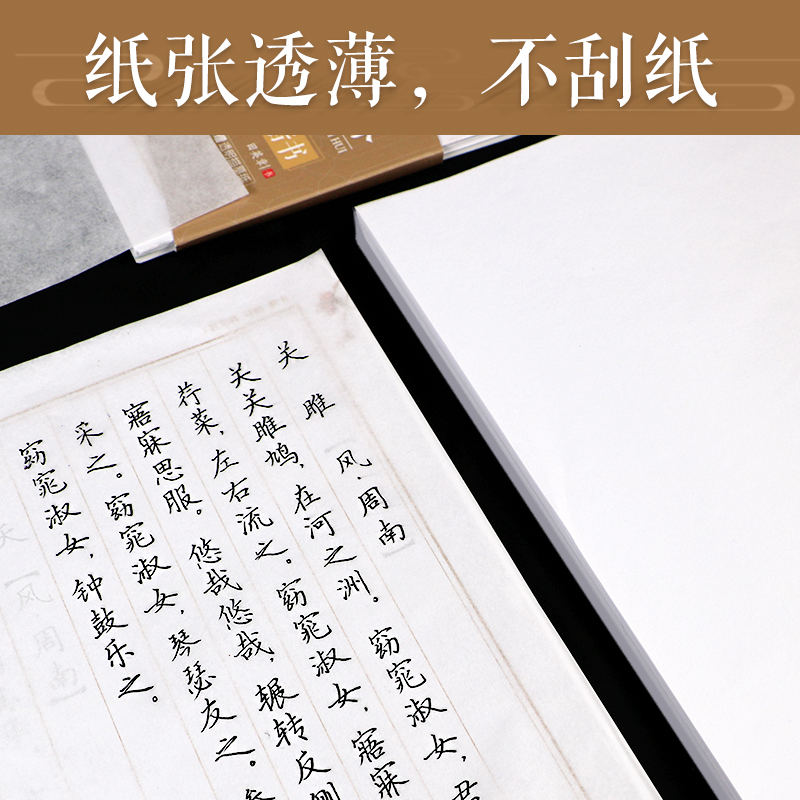 纸张透薄，不刮纸
书
田英章 书
HUI
关 雎 [风·周南]
关关雎鸠，在河之洲。窈窕淑女，君
荇菜，左右流之。窈窕淑女，寤寐
寤寐思服。悠哉悠哉，辗转反侧
采之。窈窕淑女，琴瑟友之。参
窈窕淑女，钟鼓乐之。
[风 周南]